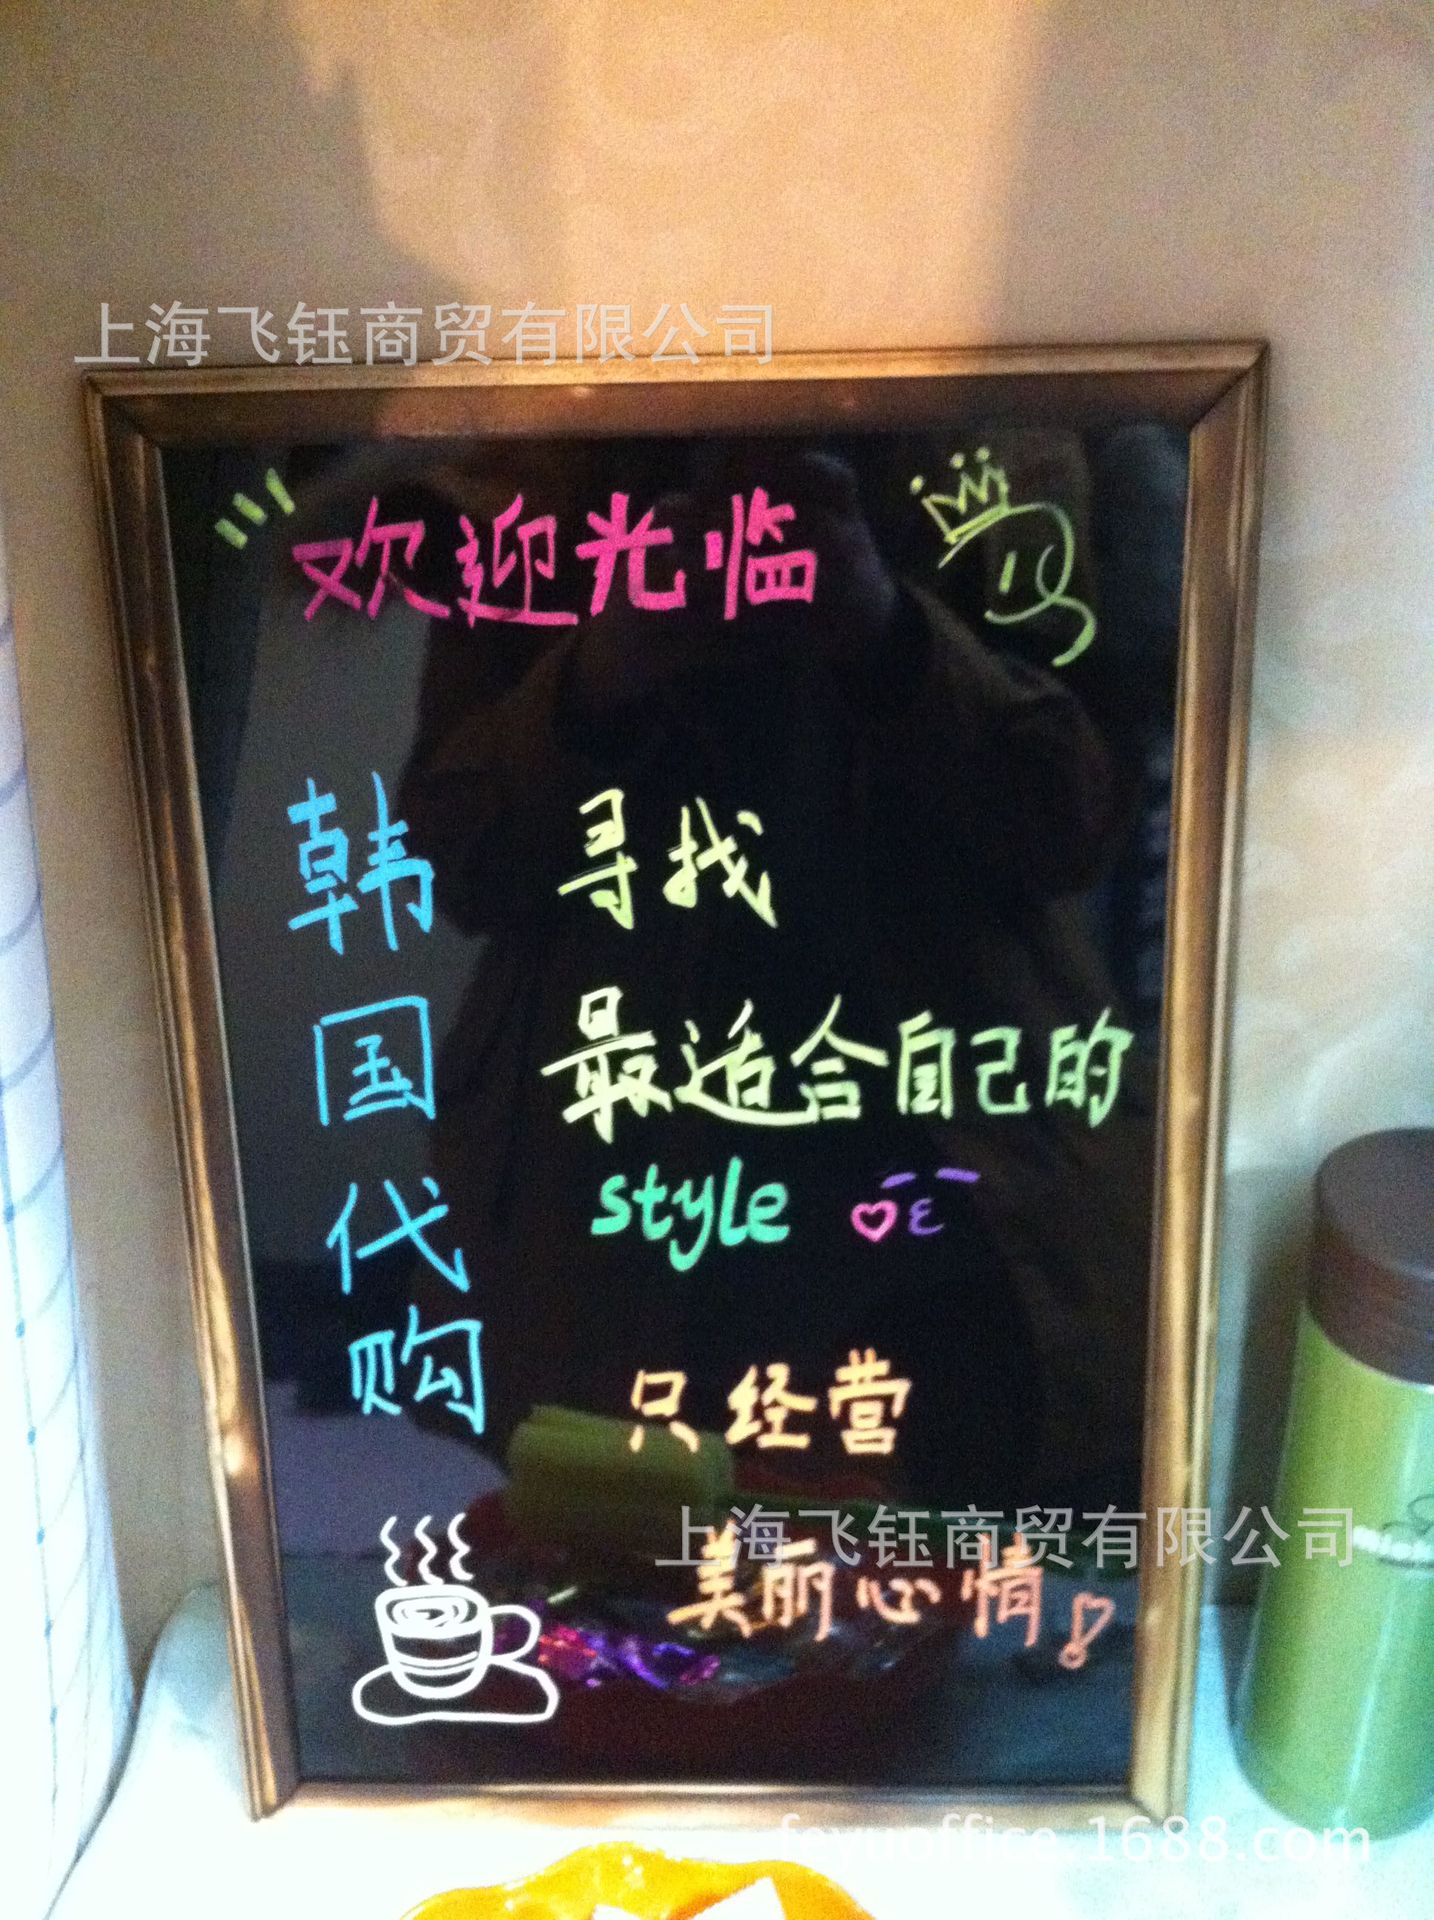 上海飞钰商贸有限公司
欢迎光临
韩国代购
寻找
最适合自己的
style
只经营
上海飞钰商贸有限公司
美丽心情!
feyuoffice.1688.com